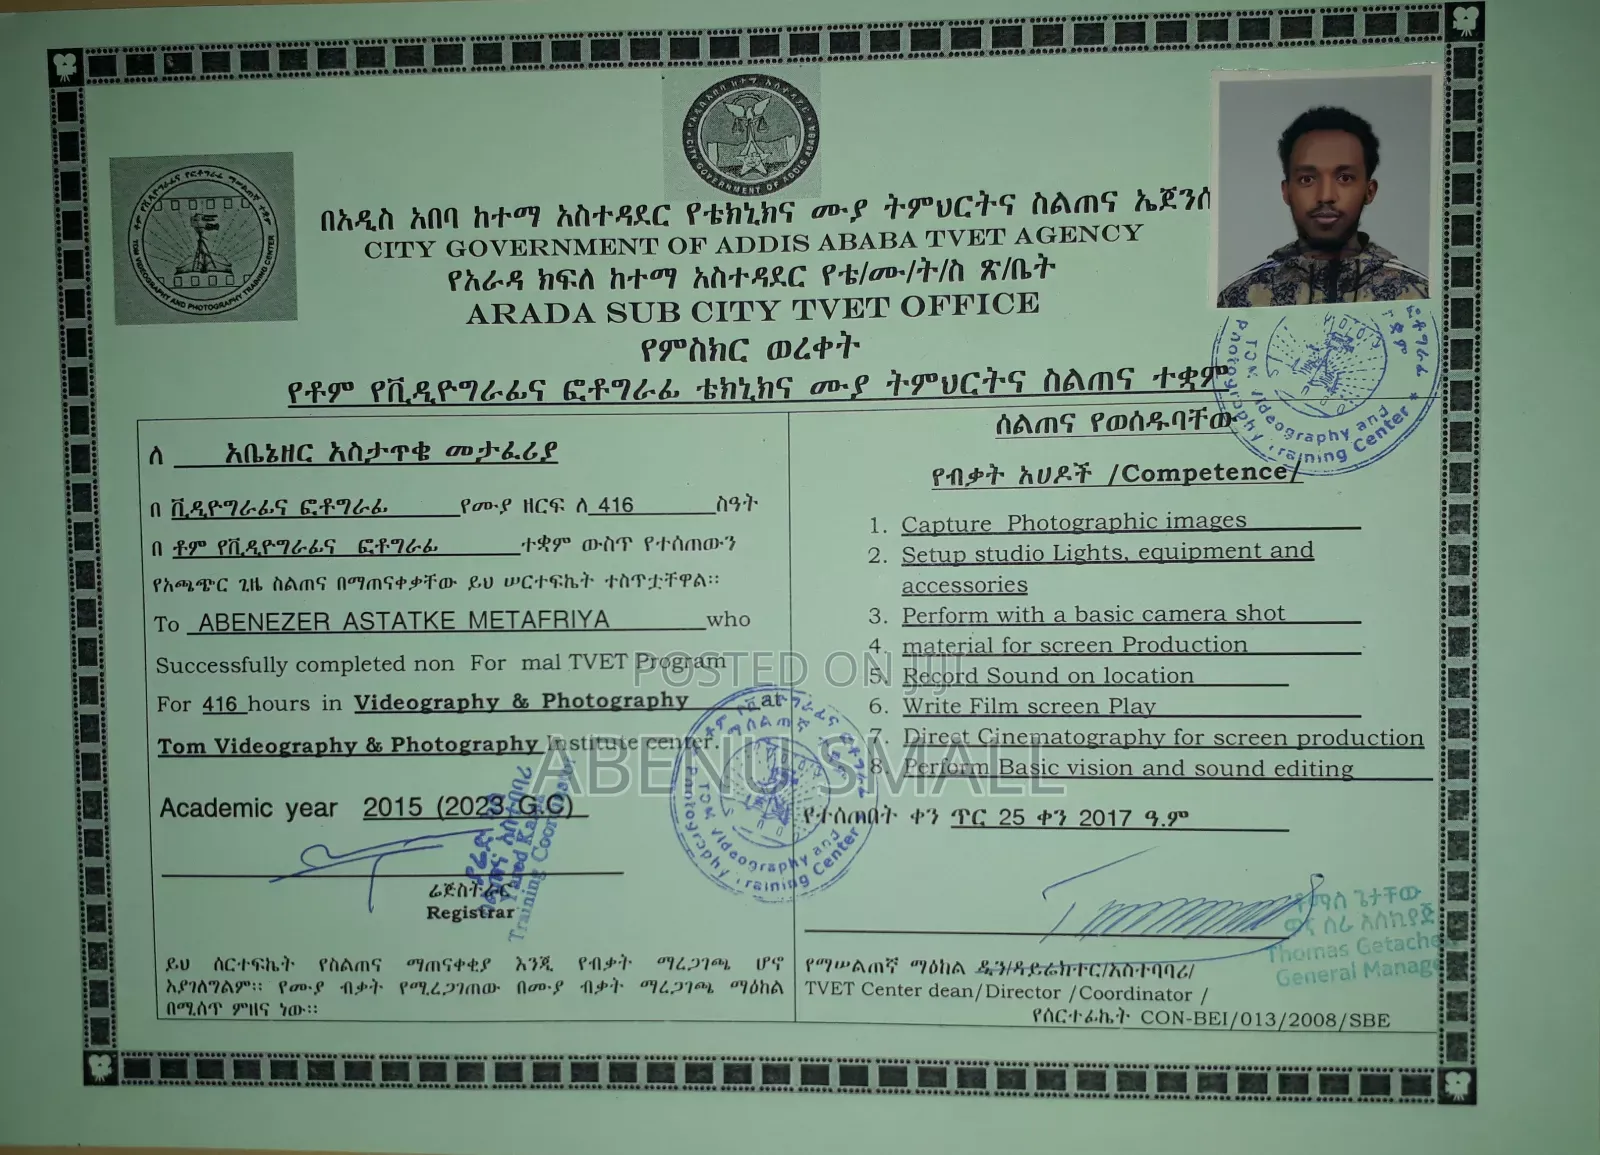 በአዲስ አበባ ከተማ አስተዳደር የቴክኒክና ሙያ ትምህርትና ስልጠና ኤጀንሲ
CITY GOVERNMENT OF ADDIS ABABA TVET AGENCY
የአራዳ ክፍለ ከተማ አስተዳደር የቴ/ሙ/ት/ስ ጽ/ቤት
ARADA SUB CITY TVET OFFICE
የምስክር ወረቀት
የቶም የቪዲዮግራፊና ፎቶግራፊ ቴክኒክና ሙያ ትምህርትና ስልጠና ተቋም
ለ አቤኔዘር አስታጥቄ መታፈሪያ
በ ቪዲዮግራፊና ፎቶግራፊ የሙያ ዘርፍ ለ 416 ስዓት
በ ቶም የቪዲዮግራፊና ፎቶግራፊ ተቋም ውስጥ የተሰጠውን
የአጫጭር ጊዜ ስልጠና በማጠናቀቃቸው ይህ ሠርተፍኬት ተስጥቷቸዋል።
To ABENEZER ASTATKE METAFRIYA who
Successfully completed non For mal TVET Program
For 416 hours in Videography & Photography at
Tom Videography & Photography Institute center.
Academic year 2015 (2023 G.C)
ሬጅስትራር
Registrar
Training Coordinator
ይህ ሰርተፍኬት የስልጠና ማጠናቀቂያ እንጂ የብቃት ማረጋገጫ ሆኖ
አያገለግልም። የሙያ ብቃት የሚረጋገጠው በሙያ ብቃት ማረጋገጫ ማዕከል
በሚሰጥ ምዘና ነው።
ሰልጠና የወሰዱባቸው
የብቃት አሀዶች /Competence/
1. Capture Photographic images
2. Setup studio Lights, equipment and
accessories
3. Perform with a basic camera shot
4. material for screen Production
5. Record Sound on location
6. Write Film screen Play
7. Direct Cinematography for screen production
8. Perform Basic vision and sound editing
የተሰጠበት ቀን ጥር 25 ቀን 2017 ዓ.ም
ቶማስ ጌታቸው
ዋና ስራ አስኪያጅ
Thomas Getache
General Manag
የማሠልጠኛ ማዕከል ዲን/ዳይሬክተር/አስተባባሪ/
TVET Center dean/Director /Coordinator /
የሰርተፊኬት CON-BEI/013/2008/SBE
CITY GOVERNMENT OF ADDIS ABABA
TOM VIDEOGRAPHY AND PHOTOGRAPHY TRAINING CENTER
POSTED ON JIJI
ABENU SMALL